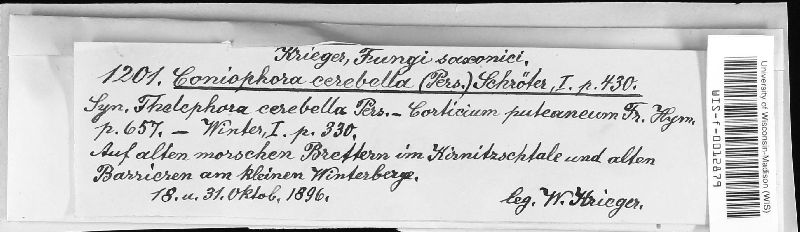 Krieger, Fungi saxonici.
1201. Coniophora cerebella (Pers.) Schröter, I. p. 430.
Syn. Thelephora cerebella Pers. – Corticium puteaneum Fr. Hym.
p. 657. – Winter, I. p. 330.
Auf alten morschen Brettern im Kirnitzschtale und alten
Barrieren am kleinen Winterberge.
18. u. 31. Oktob. 1896. leg. W. Krieger.
University of Wisconsin-Madison (WIS)
WIS-f-0012879